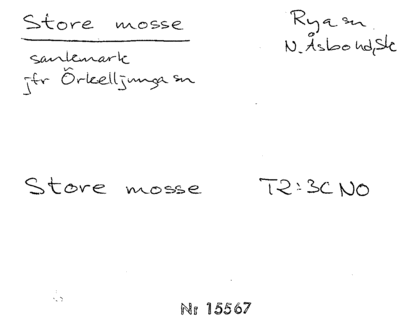 Store mosse
Rya sn
N. Åsbo hd, Sk
sankmark
jfr Örkelljunga sn
Store mosse T2:3C NO
Nr 15567